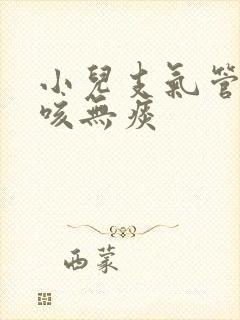 小兒支氣管
咳無痰
西蒙